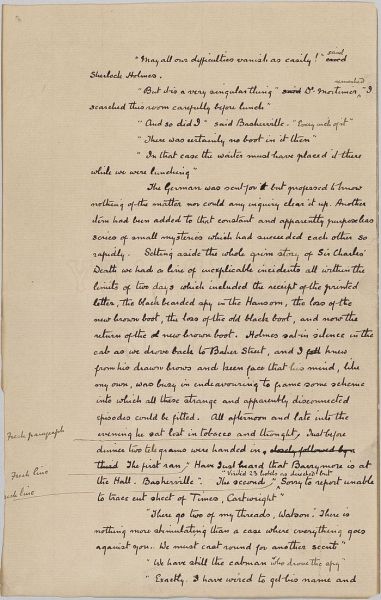 "May all our difficulties vanish as easily!" said
Sherlock Holmes.
"But it is a very singular thing" said Dr Mortimer, remarked "I
searched this room carefully before lunch"
"And so did I" said Baskerville. "Every inch of it"
"There was certainly no boot in it then"
"In that case the waiter must have placed it there
while we were lunching"
The German was sent for but professed to know
nothing of the matter nor could any inquiry clear it up. Another
item had been added to that constant and apparently purposeless
series of small mysteries which had succeeded each other so
rapidly. Setting aside the whole grim story of Sir Charles'
Death we had a line of inexplicable incidents all within the
limits of two days which included the receipt of the printed
letter, the black bearded spy in the Hansom, the loss of the
new brown boot, the loss of the old black boot, and now the
return of the new brown boot. Holmes sat in silence in the
cab as we drove back to Baker Street, and I knew
from his drawn brows and keen face that his mind, like
my own, was busy in endeavouring to frame some scheme
into which all these strange and apparently disconnected
episodes could be fitted. All afternoon and late into the
Fresh paragraph
evening he sat lost in tobacco and thought. Just before
dinner two telegrams were handed in, closely followed by a
third The first ran, "Have Just heard that Barrymore is at
Fresh line
the Hall. Baskerville". The second, "Visited 23 hotels as directed but Sorry to report unable
Fresh line
to trace cut sheet of Times, Cartwright"
"There go two of my threads, Watson. There is
nothing more stimulating than a case where everything goes
against you. We must cast round for another scent"
"We have still the cabman who drove the spy"
"Exactly. I have wired to get his name and